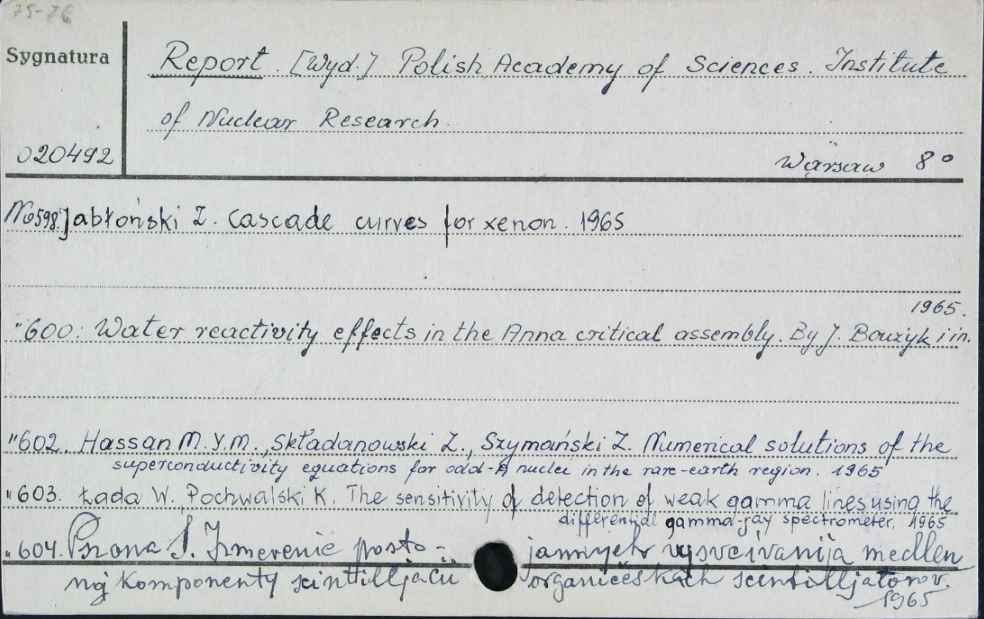 75-76
Sygnatura
Report. [Wyd.] Polish Academy of Sciences. Institute
of Nuclear Research.
020492
Warsaw 8°
No 598. Jabłoński Z. Cascade curves for xenon. 1965
1965.
"600. Water reactivity effects in the Anna critical assembly. By J. Bouzyk i in.
"602. Hassan M.Y.M., Składanowski Z., Szymański Z. Numerical solutions of the
superconductivity equations for odd-A nuclei in the rare-earth region. 1965
"603. Łada W. Pochwalski K. The sensitivity of detection of weak gamma lines using the
differential gamma-ray spectrometer. 1965
"604. Pszona S. Izmerenie posto- jannych vysvečivanija medlen
noj komponenty scintilljacii organičeskich scintilljatorov.
1965